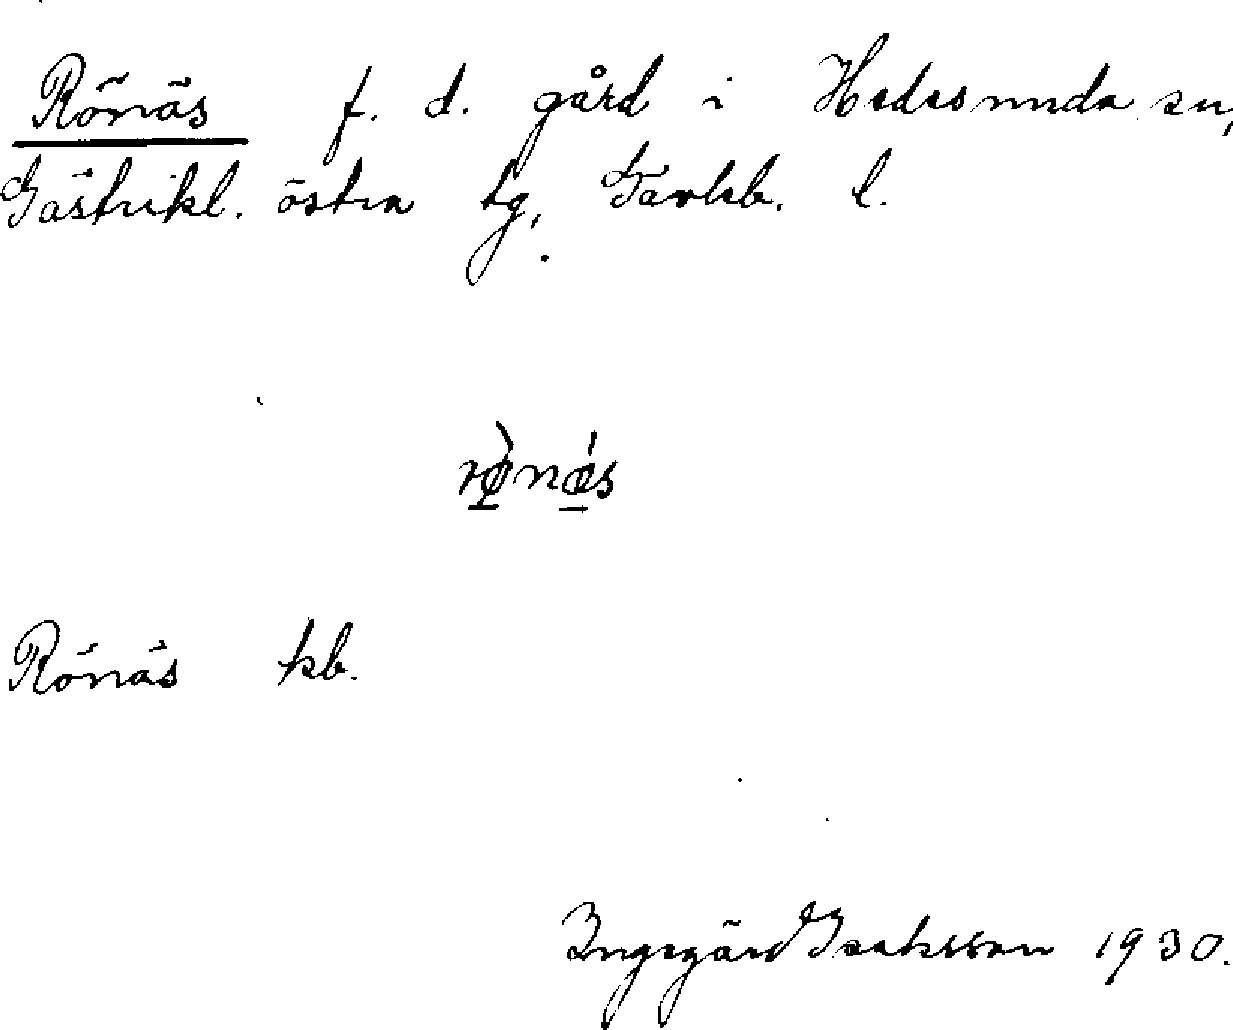 Rönäs f. d. gård i Hedesunda sn,
Gästrikl. östra tg, Gävleb. l.
rø̀nǽs
Rönäs kb.
Ingegärd Isaksson 1930.